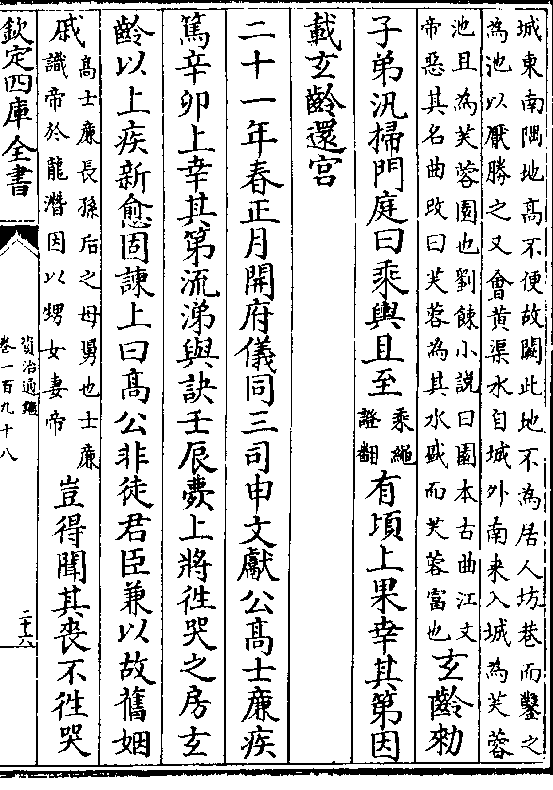 城東南隅地髙不便故闕此地不為居人坊巷而鑿之
為池以厭勝之又會黄渠水自城外南來入城為芙蓉
池且為芙蓉園也劉餗小説曰園本古曲江文
帝惡其名曲改曰芙蓉為其水盛而芙蓉富也
玄齡勑
子弟汎掃門庭曰乘輿且至
乘繩
證翻
有頃上果幸其第因
載玄齡還宫
二十一年春正月開府儀同三司申文獻公髙士廉疾
篤辛卯上幸其第流涕與訣壬辰薨上將徃哭之房玄
齡以上疾新愈固諫上曰髙公非徒君臣兼以故舊姻
戚
髙士廉長孫后之母舅也士廉
識帝於龍潛因以甥女妻帝
豈得聞其喪不徃哭
欽定四庫全書
資治通鑑
卷一百九十八
二十六